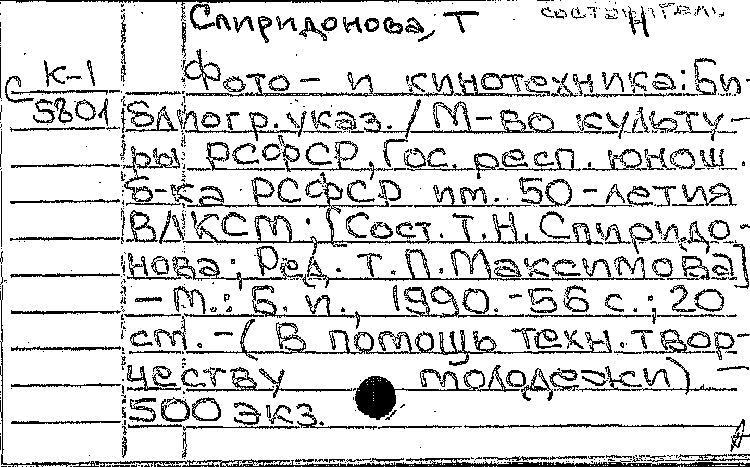 Спиридонова, Т Н составитель
К-1 Фото- и кинотехника: Би-
С 5801 блиогр. указ. / М-во культу-
ры РСФСР, Гос. респ. юнош.
б-ка РСФСР им. 50-летия
ВЛКСМ; [Сост. Т.Н. Спиридо-
нова; Ред. Т.П. Максимова]
– М.: Б. и., 1990. -56 с.; 20
см. – ( В помощь техн. твор-
честву молодежи) –
500 экз.